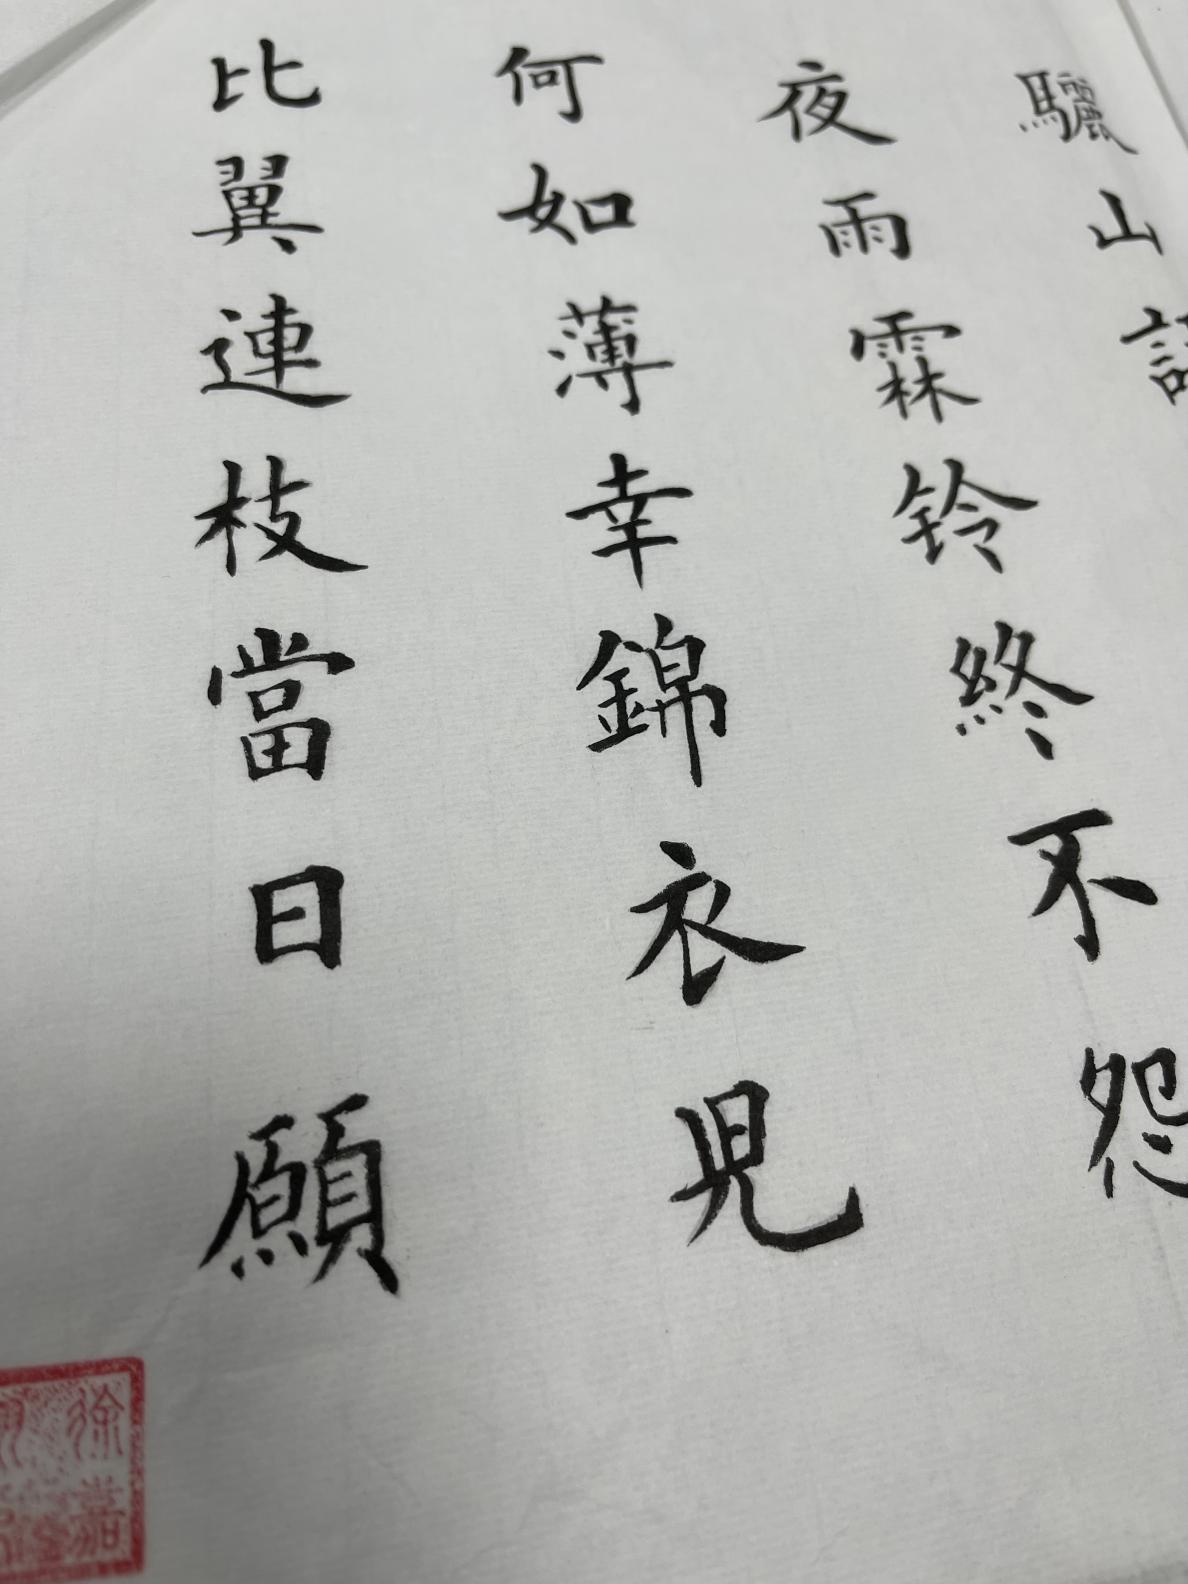 驪山語
夜雨霖鈴終不怨
何如薄幸錦衣児
比翼連枝當日願
徐